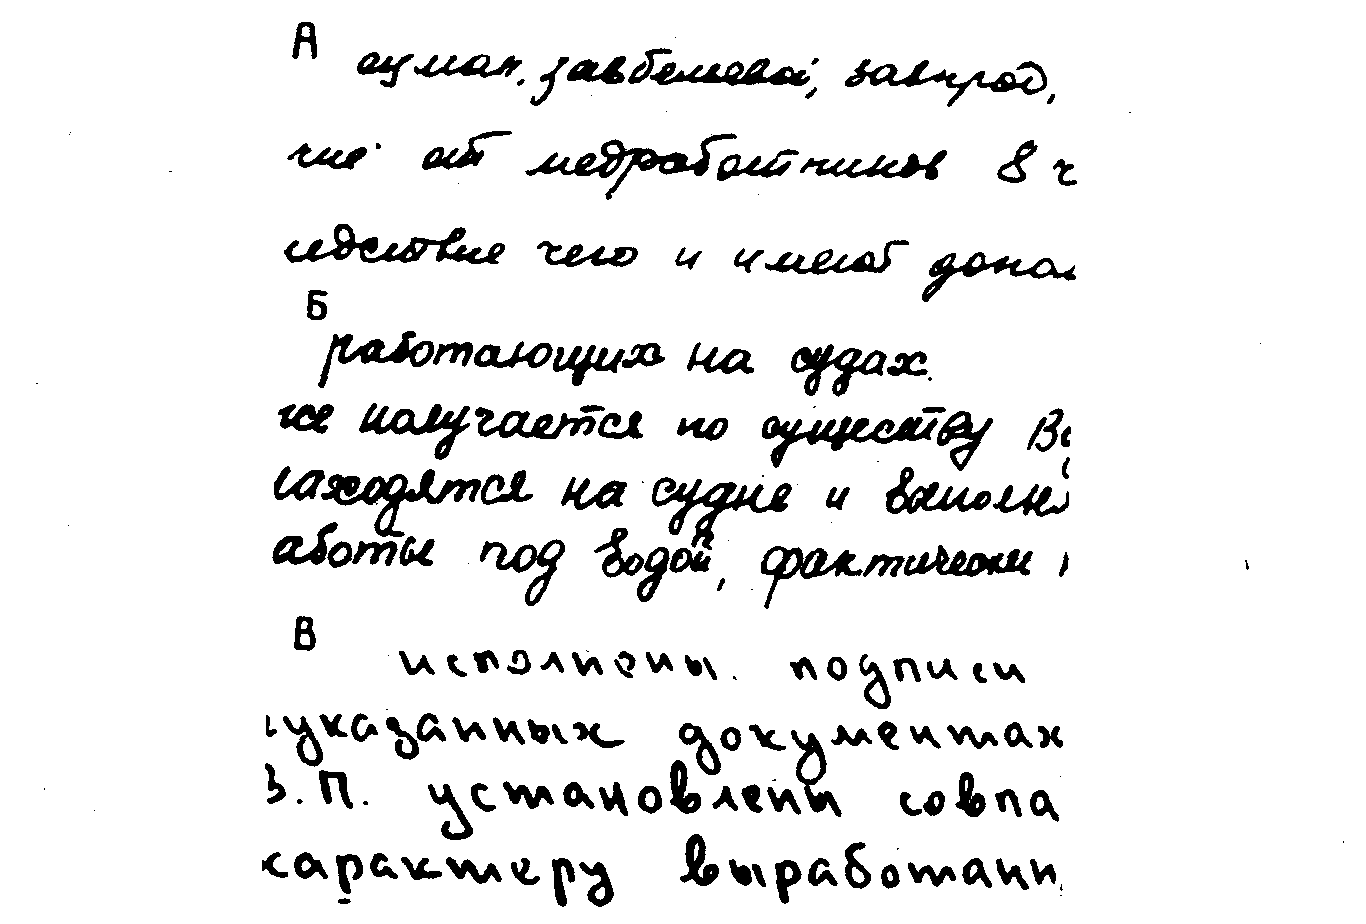 А
оцман, завбельевой, завпрод,
ние от медработников 8 ч
ледствие чего и имеют допол
Б
работающих на судах.
же получается по существу Вс
находятся на судне и выполня
аботы под водой, фактически
В
исполнены. подписи
указанных документах
З.П. установлены совпа
характеру выработанн